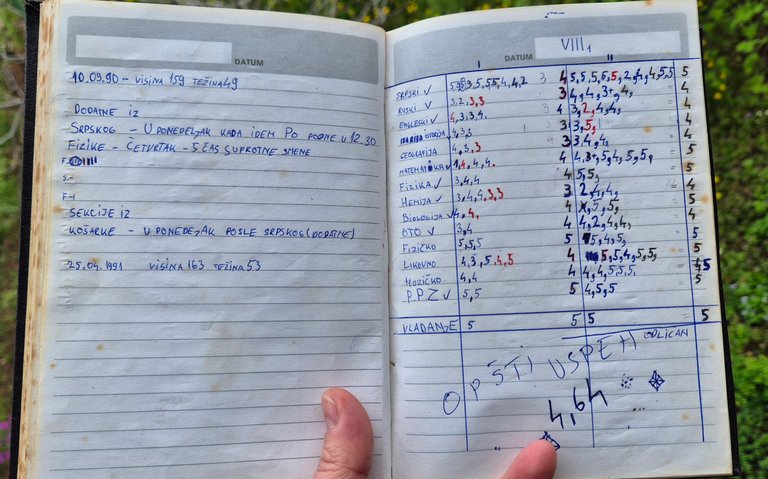 DATUM
10.09.90 - VISINA 159 TEŽINA 49
DODATNE IZ
SRPSKOG - U PONEDELJAK KADA IDEM PO PODNE U 12.30
FIZIKE - ČETVRTAK - 5 ČAS SUPROTNE SMENE
SEKCIJE IZ
KOŠARKE - U PONEDELJAK POSLE SRPSKOG (DODATNE)
25.04.1991 VISINA 163 TEŽINA 53
DATUM VIII₁
I II
SRPSKI ✓ 4 5
RUSKI ✓ 3,2,3,3 3 4,4,3+,4, = 4
ENGLESKI ✓ 4,3,3,4. 4 3,2,4,4, = 4
ISTORIJA 4,3,3 3 3,5, = 4
GEOGRAFIJA 4,3,3 3 3,4,4, = 4
MATEMATIKA ✓ 1,4,4,4. 4 = 5
FIZIKA ✓ 3,4,4 4 5,5, = 5
HEMIJA ✓ 3,4,4,3,3 3 2,4,4, = 4
BIOLOGIJA ✓ 4,4, 4 5,5, = 5
OTO ✓ 3,4 4 4,2,4,4, = 4
FIZIČKO 5,5,5 5 5,4,5, = 5
LIKOVNO 4,3,5,4,5 4 5,5,4,5,5, = 5
MUZIČKO 4,4 4 4,4,5,5,5. = 5
P.P.Z ✓ 5,5 5 4,5,5 = 5
VLADANJE 5 5 5 = 5
ODLIČAN
OPŠTI USPEH
4,64